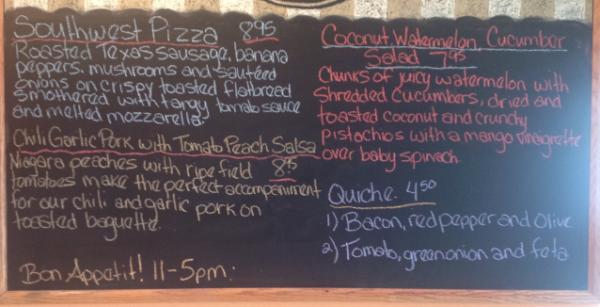 Southwest Pizza 8.95
Roasted Texas sausage, banana
peppers, mushrooms and sautéed
onions on crispy toasted flatbread
smothered with tangy tomato sauce
and melted mozzarella.
Chili Garlic Pork with Tomato Peach Salsa
Niagara peaches with ripe field 8.95
tomatoes make the perfect accompaniment
for our chili and garlic pork on
toasted baguette.
Bon Appetit! 11-5pm.
Coconut Watermelon, Cucumber
Salad 7.95
Chunks of juicy watermelon with
Shredded Cucumbers, dried and
toasted coconut and crunchy
pistachios with a mango vinaigrette
over baby spinach.
Quiche. 4.50
1) Bacon, red pepper and Olive
2) Tomato, green onion and feta